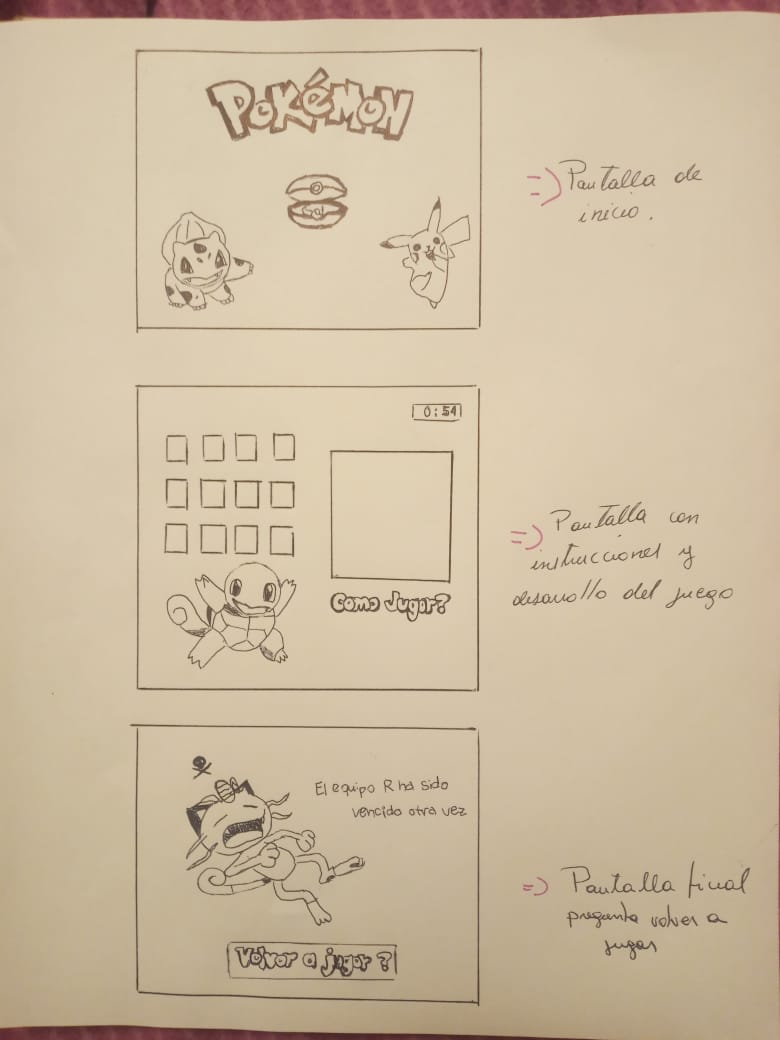 Pokémon
=> Pantalla de
inicio.
0:54
Como Jugar?
=> Pantalla con
instrucciones y
desarrollo del juego
El equipo R ha sido
vencido otra vez
Volver a jugar?
=> Pantalla final
pregunta volver a
jugar